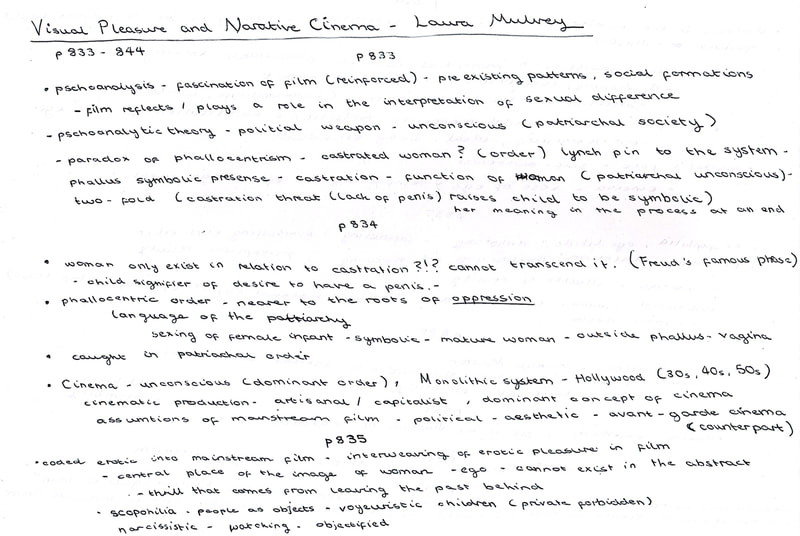 Visual Pleasure and Narative Cinema - Laura Mulvey
p 833 - 844
p 833
• pschoanalysis - fascination of film (reinforced) - pre existing patterns, social formations
- film reflects / plays a role in the interpretation of sexual difference
- pschoanalytic theory - political weapon - unconscious (patriarchal society)
- paradox of phallocentrism - castrated woman? (order) lynch pin to the system -
phallus symbolic presense - castration - function of woman (patriarchal unconscious) -
two-fold (castration threat (lack of penis) raises child to be symbolic)
her meaning in the process at an end
p 834
• woman only exist in relation to castration?!? cannot transcend it. (Freud's famous phrase)
- child signifier of desire to have a penis. -
• phallocentric order - nearer to the roots of oppression
language of the patriarchy
sexing of female infant - symbolic - mature woman - outside phallus - vagina
• caught in patriachal order
• Cinema - unconscious (dominant order), Monolithic system - Hollywood (30s, 40s, 50s)
cinematic production - artisanal / capitalist, dominant concept of cinema
assumtions of mainstream film - political - aesthetic - avant-garde cinema
(counterpart)
p 835
• coded erotic into mainstream film - interweaving of erotic pleasure in film
- central place of the image of woman - ego - cannot exist in the abstract
- thrill that comes from leaving the past behind
- scopohilia - people as objects - voyeuristic children (private forbidden)
narcissistic - watching - objectified